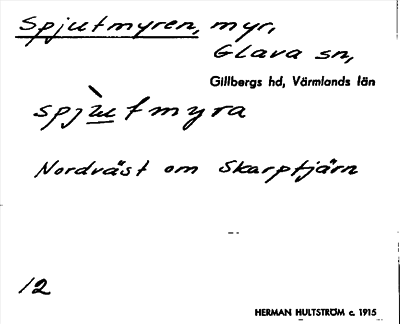 Spjutmyren, myr,
Glava sn,
Gillbergs hd, Värmlands län
spjùtmyra
Nordväst om Skarptjärn
12
HERMAN HULTSTRÖM c. 1915